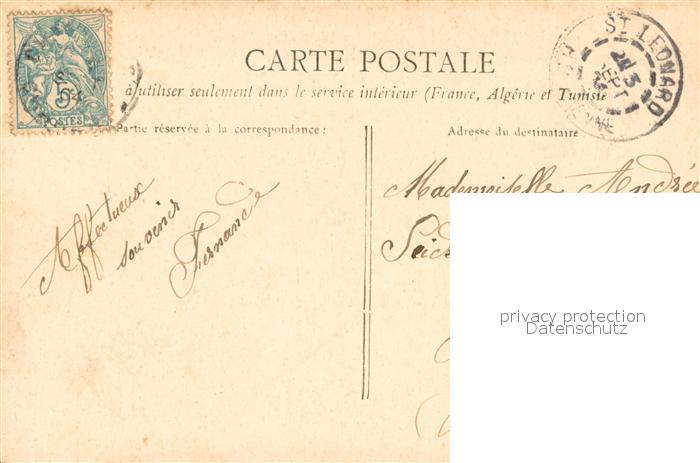 CARTE POSTALE
à utiliser seulement dans le service intérieur (France, Algérie et Tunisie
Partie réservée à la correspondance:
Adresse du destinataire
ST LEONARD
5c
POSTES
Affectueux
souvenir
Fernande
Mademoiselle Andrée
privacy protection
Datenschutz